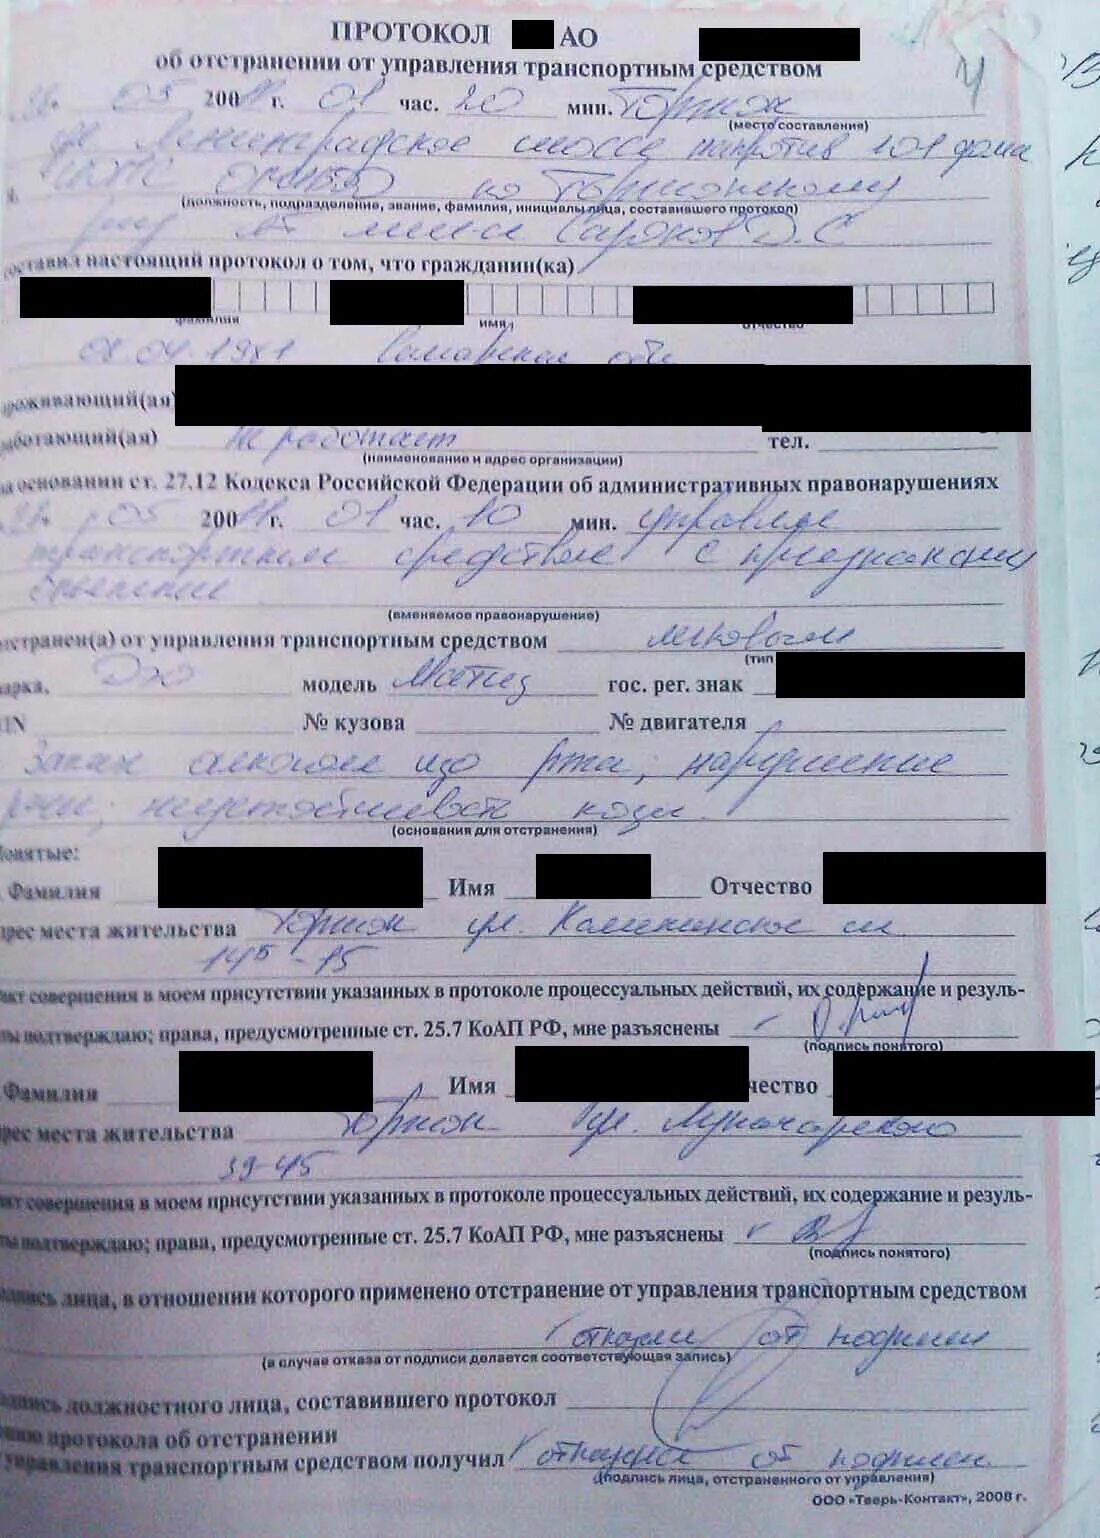 ПРОТОКОЛ АО
об отстранении от управления транспортным средством
05 200 г. 01 час. 20 мин. Торжок
(место составления)
ул Ленинградское шоссе напротив 101 дома
по Торжокскому
(должность, подразделение, звание, фамилия, инициалы лица, составившего протокол)
составил настоящий протокол о том, что гражданин(ка)
фамилия имя отчество
08.04.1981 Самарская обл
проживающий(ая)
работающий(ая) не работает тел.
(наименование и адрес организации)
на основании ст. 27.12 Кодекса Российской Федерации об административных правонарушениях
05 200 г. 01 час. 10 мин. управлял
транспортным средством с признаками
опьянения
(вменяемое правонарушение)
отстранен(а) от управления транспортным средством легковым
(тип
марка, модель Матиз гос. рег. знак
VIN № кузова № двигателя
Запах алкоголя изо рта, нарушение
речи, неустойчивость позы.
(основания для отстранения)
Понятые:
Фамилия Имя Отчество
адрес места жительства Торжок ул. Калининское ш
145-15
факт совершения в моем присутствии указанных в протоколе процессуальных действий, их содержание и резуль-
таты подтверждаю; права, предусмотренные ст. 25.7 КоАП РФ, мне разъяснены
(подпись понятого)
Фамилия Имя чество
адрес места жительства Торжок ул. Луначарского
39-45
факт совершения в моем присутствии указанных в протоколе процессуальных действий, их содержание и резуль-
таты подтверждаю; права, предусмотренные ст. 25.7 КоАП РФ, мне разъяснены
(подпись понятого)
подпись лица, в отношении которого применено отстранение от управления транспортным средством
от подписи
(в случае отказа от подписи делается соответствующая запись)
подпись должностного лица, составившего протокол
копию протокола об отстранении
от управления транспортным средством получил от подписи
(подпись лица, отстраненного от управления)
ООО «Тверь-Контакт», 2008 г.